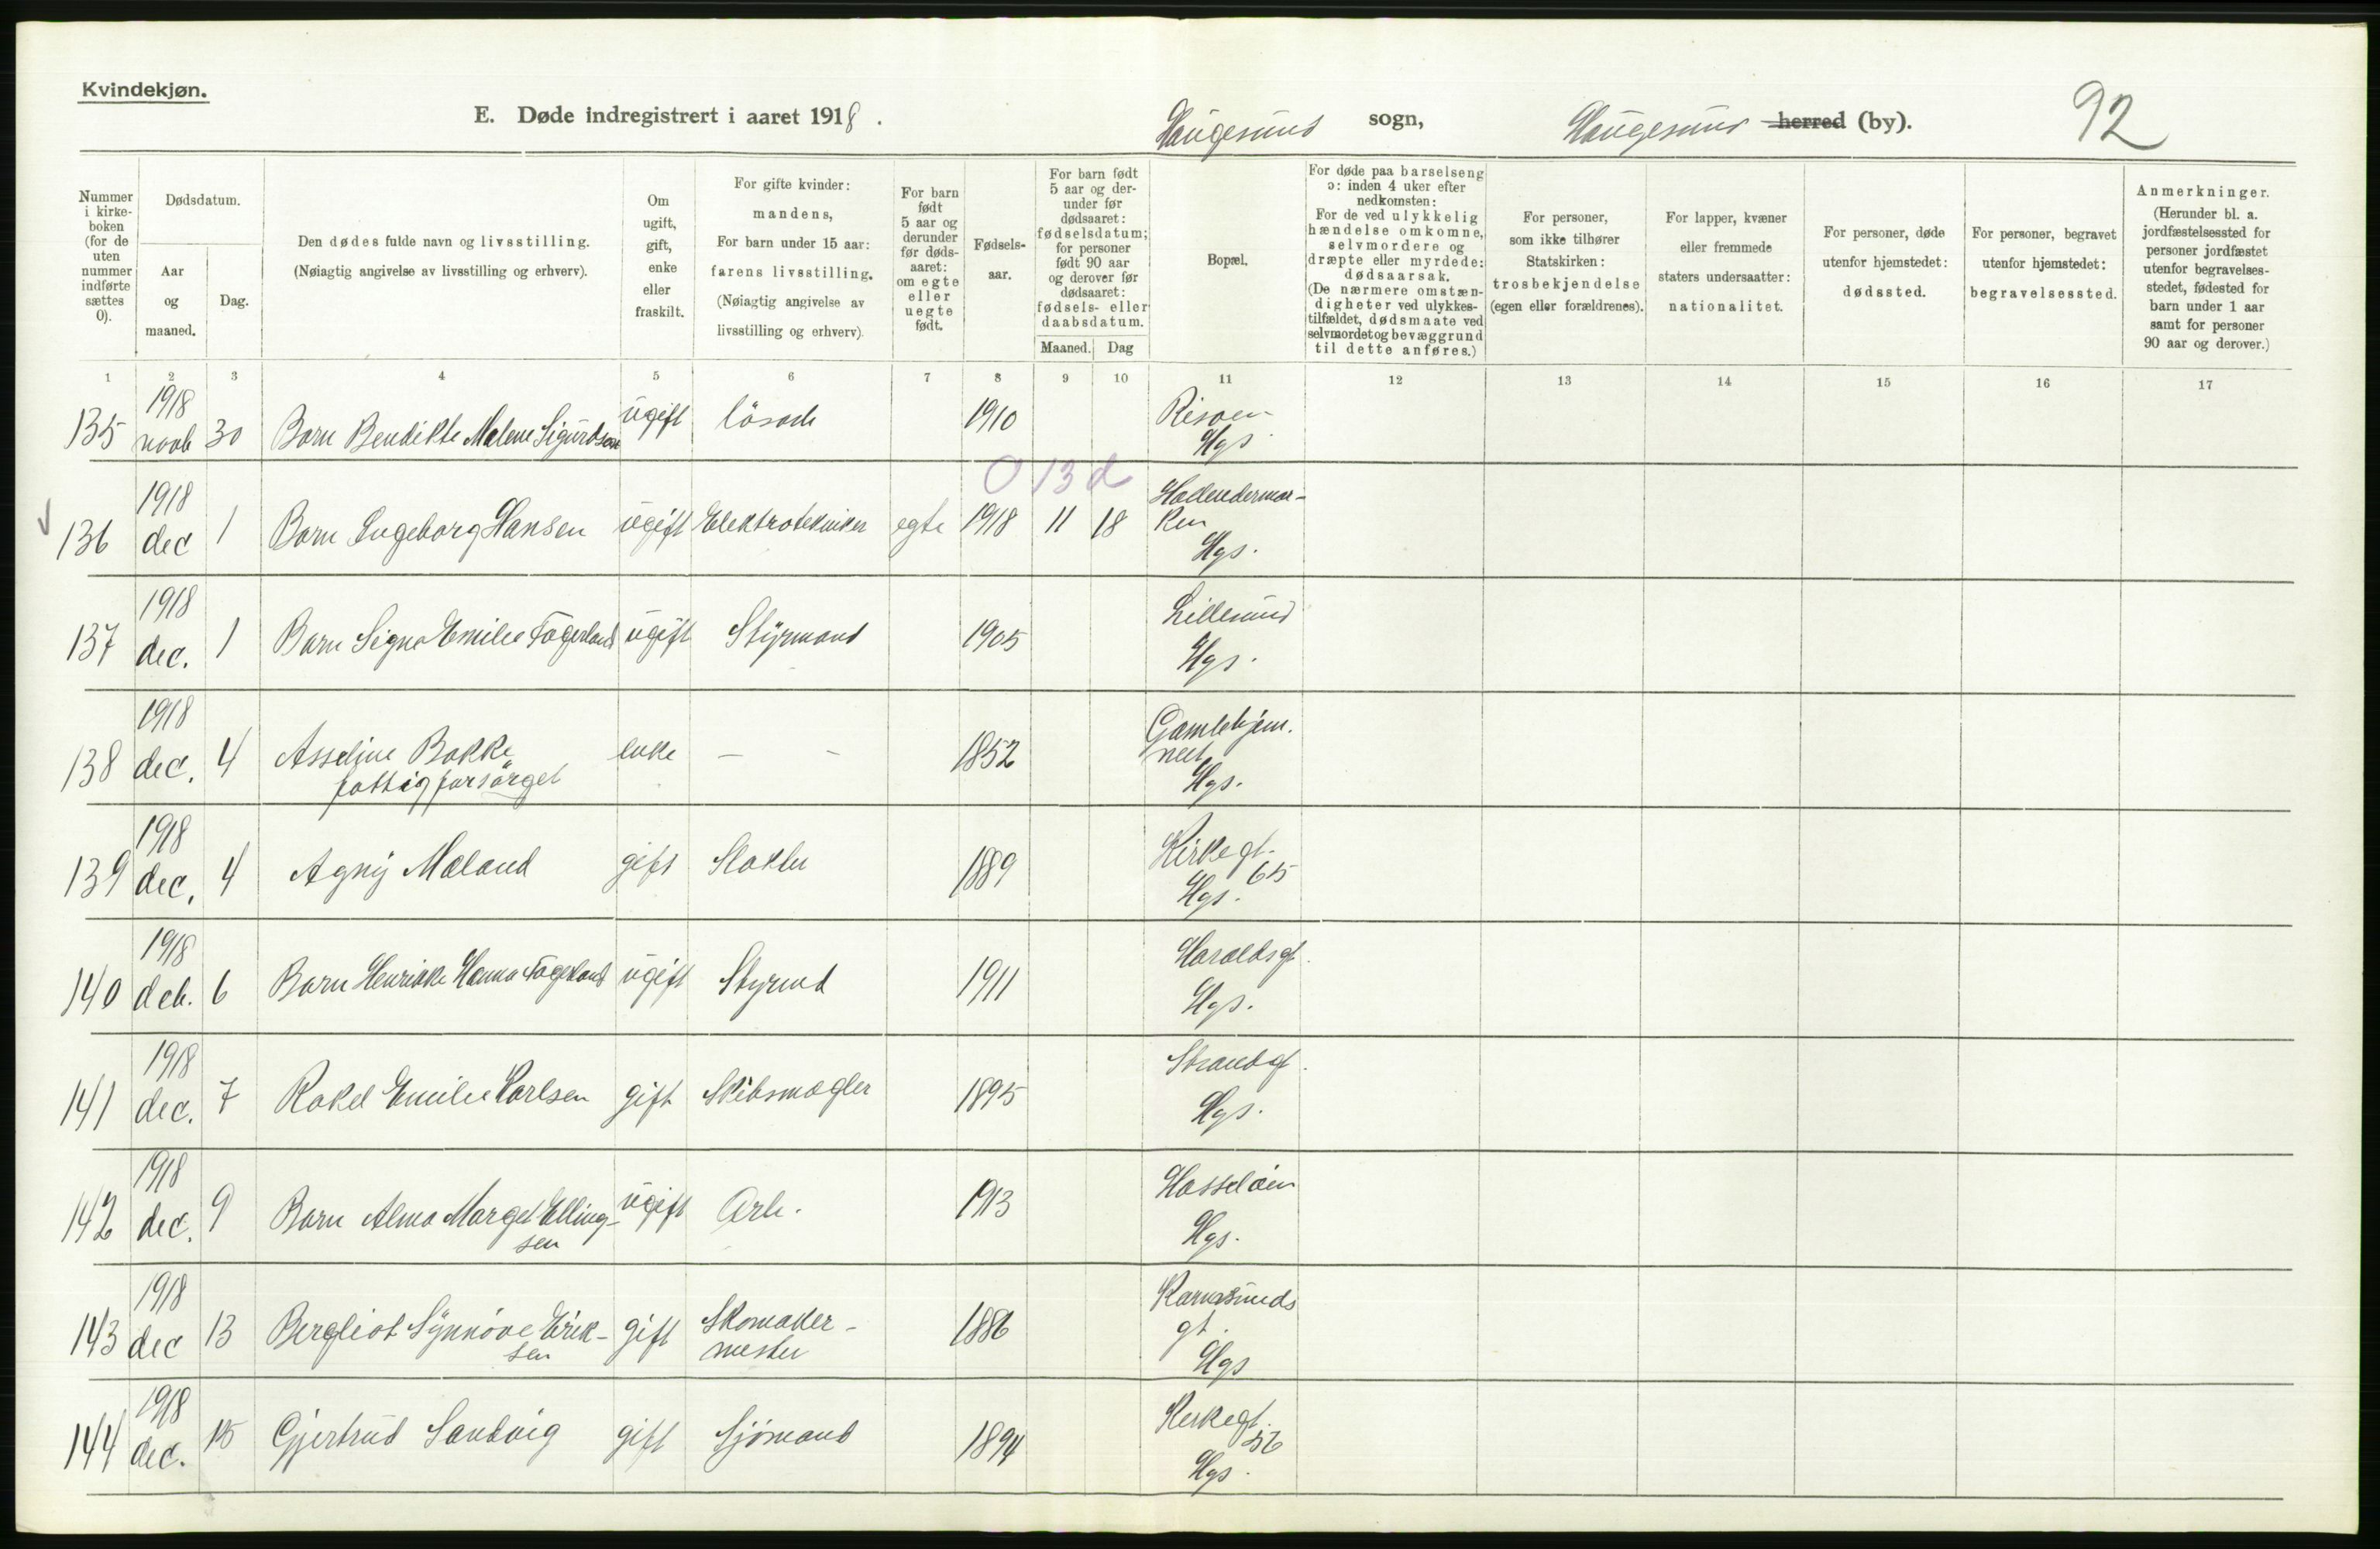 Kvindekjøn.
E. Døde indregistrert i aaret 1918. Haugesund sogn, Haugesund herred (by). 92
Nummer i kirke- boken (for de uten nummer indførte sættes 0).
Dødsdatum.
Aar og maaned.
Dag.
Den dødes fulde navn og livsstilling.
(Nøiagtig angivelse av livsstilling og erhverv).
Om ugift, gift, enke eller fraskilt.
For gifte kvinder: mandens,
For barn under 15 aar: farens livsstilling.
(Nøiagtig angivelse av livsstilling og erhverv).
For barn født 5 aar og derunder før døds- aaret: om egte eller uegte født.
Fødsels- aar.
For barn født 5 aar og der- under før dødsaaret: fødselsdatum; for personer født 90 aar og derover før dødsaaret: fødsels- eller daabsdatum.
Maaned. Dag
Bopæl.
For døde paa barselseng ɔ: inden 4 uker efter nedkomsten:
For de ved ulykkelig hændelse omkomne, selvmordere og dræpte eller myrdede: dødsaarsak.
(De nærmere omstæn- digheter ved ulykkes- tilfældet, dødsmaate ved selvmordet og bevæggrund til dette anføres.)
For personer, som ikke tilhører Statskirken: trosbekjendelse (egen eller forældrenes).
For lapper, kvæner eller fremmede staters undersaatter: nationalitet.
For personer, døde utenfor hjemstedet: dødssted.
For personer, begravet utenfor hjemstedet: begravelsessted.
Anmerkninger.
(Herunder bl. a. jordfæstelsessted for personer jordfæstet utenfor begravelses- stedet, fødested for barn under 1 aar samt for personer 90 aar og derover.)
1 2 3 4 5 6 7 8 9 10 11 12 13 14 15 16 17
135 1918 novb 30 Barn Bendikte Malene Sigurdsen ugift 1910 Risøen Hgs
0 13 d
136 1918 dec 1 Barn Ingeborg Hansen ugift Elektrotekniker egte 1918 11 18 Hollendermar- ken Hgs.
137 1918 dec. 1 Barn Signe Emilie Fagerland ugift Styrmand 1905 Lillesund Hgs.
138 1918 dec. 4 Asseline Bakke fattigforsørget enke — — 1852 Gamlehjem. met Hgs.
139 1918 dec. 4 Agny Mæland gift Slakter 1889 Kirkegt. 65 Hgs.
140 1918 deb. 6 Barn Henrikke Hanna Fagerland ugift Styrmd 1911 Haraldsgt. Hgs.
141 1918 dec. 7 Rakel Emilie Karlsen gift Skibsmægler 1895 Strandgt. Hgs.
142 1918 dec. 9 Barn Alma Marget Elling- sen ugift Arb. 1913 Hasseløen Hgs.
143 1918 dec 13 Bergliot Synnøve Erik- sen gift Skomaker- mester 1886 Karmsunds gt. Hgs
144 1918 dec. 15 Gjertrud Sandvig gift Sjømand 1894 Kirkegt. 56 Hgs.